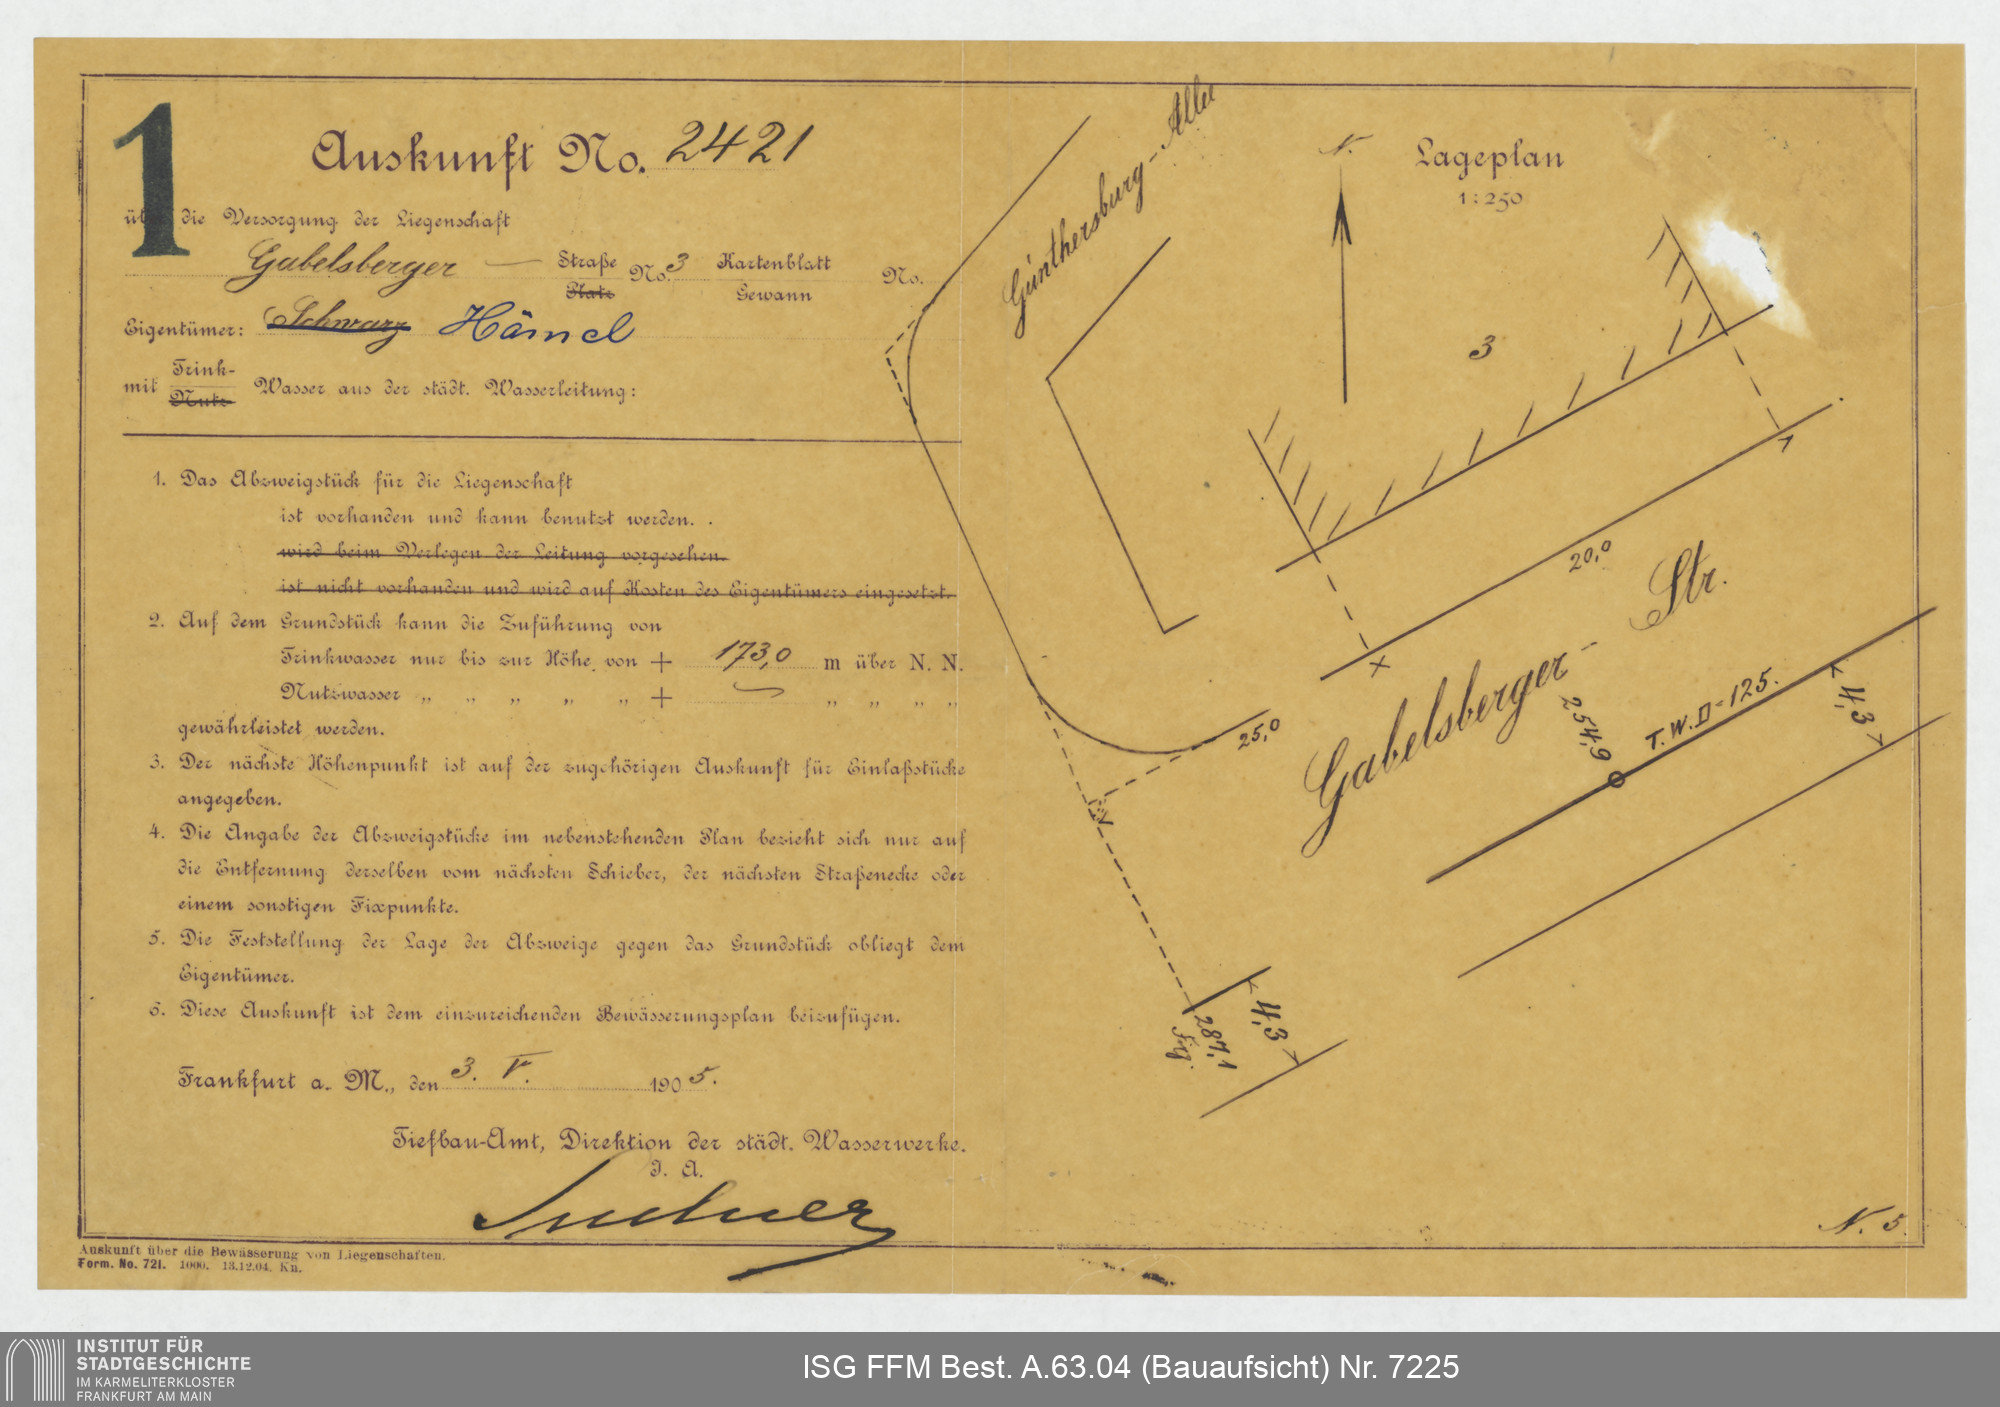 1
Auskunft No. 2421
über die Versorgung der Liegenschaft
Gabelsberger — Straße Platz No. 3 Kartenblatt Gewann No.
Eigentümer: Schwarz Hämel
mit Trink- Nutz- Wasser aus der städt. Wasserleitung:
1. Das Abzweigstück für die Liegenschaft
ist vorhanden und kann benutzt werden.
wird beim Verlegen der Leitung vorgesehen.
ist nicht vorhanden und wird auf Kosten des Eigentümers eingesetzt.
2. Auf dem Grundstück kann die Zuführung von
Trinkwasser nur bis zur Höhe von + 173,0 m über N. N.
Nutzwasser „ „ „ „ „ + „ „ „ „
gewährleistet werden.
3. Der nächste Höhenpunkt ist auf der zugehörigen Auskunft für Einlaßstücke
angegeben.
4. Die Angabe der Abzweigstücke im nebenstehenden Plan bezieht sich nur auf
die Entfernung derselben vom nächsten Schieber, der nächsten Straßenecke oder
einem sonstigen Fixpunkte.
5. Die Feststellung der Lage der Abzweige gegen das Grundstück obliegt dem
Eigentümer.
6. Diese Auskunft ist dem einzureichenden Bewässerungsplan beizufügen.
Frankfurt a. M., den 3. V. 1905.
Tiefbau-Amt, Direktion der städt. Wasserwerke.
J. A.
Auskunft über die Bewässerung von Liegenschaften.
Form. No. 721. 1000. 13.12.04. Kn.
Günthersburg-Allee
N.
Lageplan
1:250
3
20,0
25,0
Gabelsberger-Str.
254,9
T.W.D=125.
4,3
4,3
287,1
N. 5.
INSTITUT FÜR
STADTGESCHICHTE
IM KARMELITERKLOSTER
FRANKFURT AM MAIN
ISG FFM Best. A.63.04 (Bauaufsicht) Nr. 7225